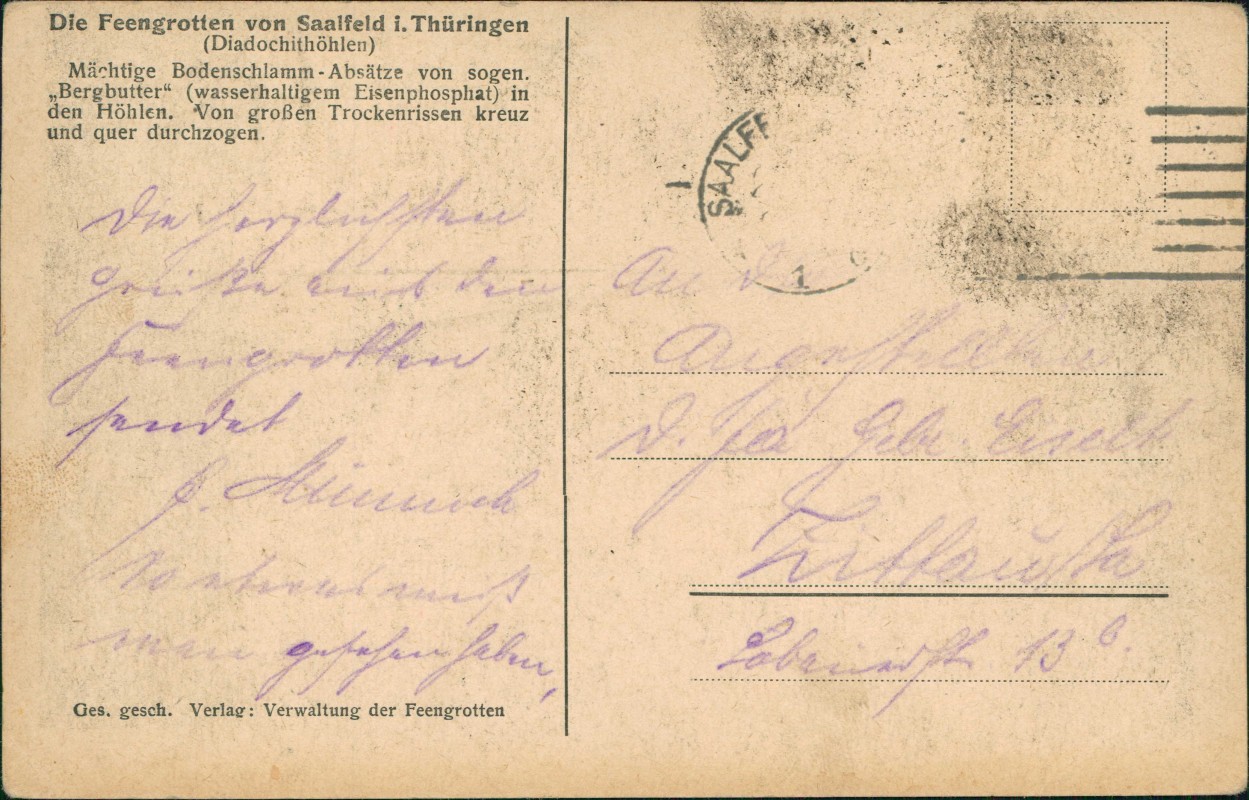 Die Feengrotten von Saalfeld i. Thüringen
(Diadochithöhlen)
Mächtige Bodenschlamm-Absätze von sogen.
„Bergbutter“ (wasserhaltigem Eisenphosphat) in
den Höhlen. Von großen Trockenrissen kreuz
und quer durchzogen.
Die herzlichsten
Grüße aus den
Feengrotten
sendet
So etwas muß
man gesehen haben,
Ges. gesch. Verlag: Verwaltung der Feengrotten
SAALF
1
An die
Angestellten
d. Fa Gebr.
Zittau Sa
13 b.